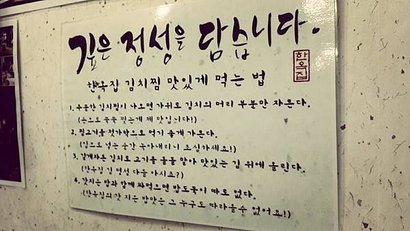 깊은 정성을 담습니다.
한옥집
한옥집 김치찜 맛있게 먹는 법
1. 우둥간 김치찜이 나오면 가위로 김치의 머리 부분만 자른다.
(손으로 쭉쭉 찢는게 제 맛입니다!)
2. 찜고기를 젓가락으로 먹기 좋게 가른다.
(입으로 넣는 순간 녹아내리니 조심하세요!)
3. 갈게자른 김치로 고기를 돌돌 말아 맛있는 김 위에 올린다.
(한옥집 김 명성 다들 아시요?)
4. 갓지은 밥과 함께 싸먹으면 밥도둑이 따로 없다.
(한옥집의 갓 지은 밥맛은 그 누구도 따라올수 없어요!)